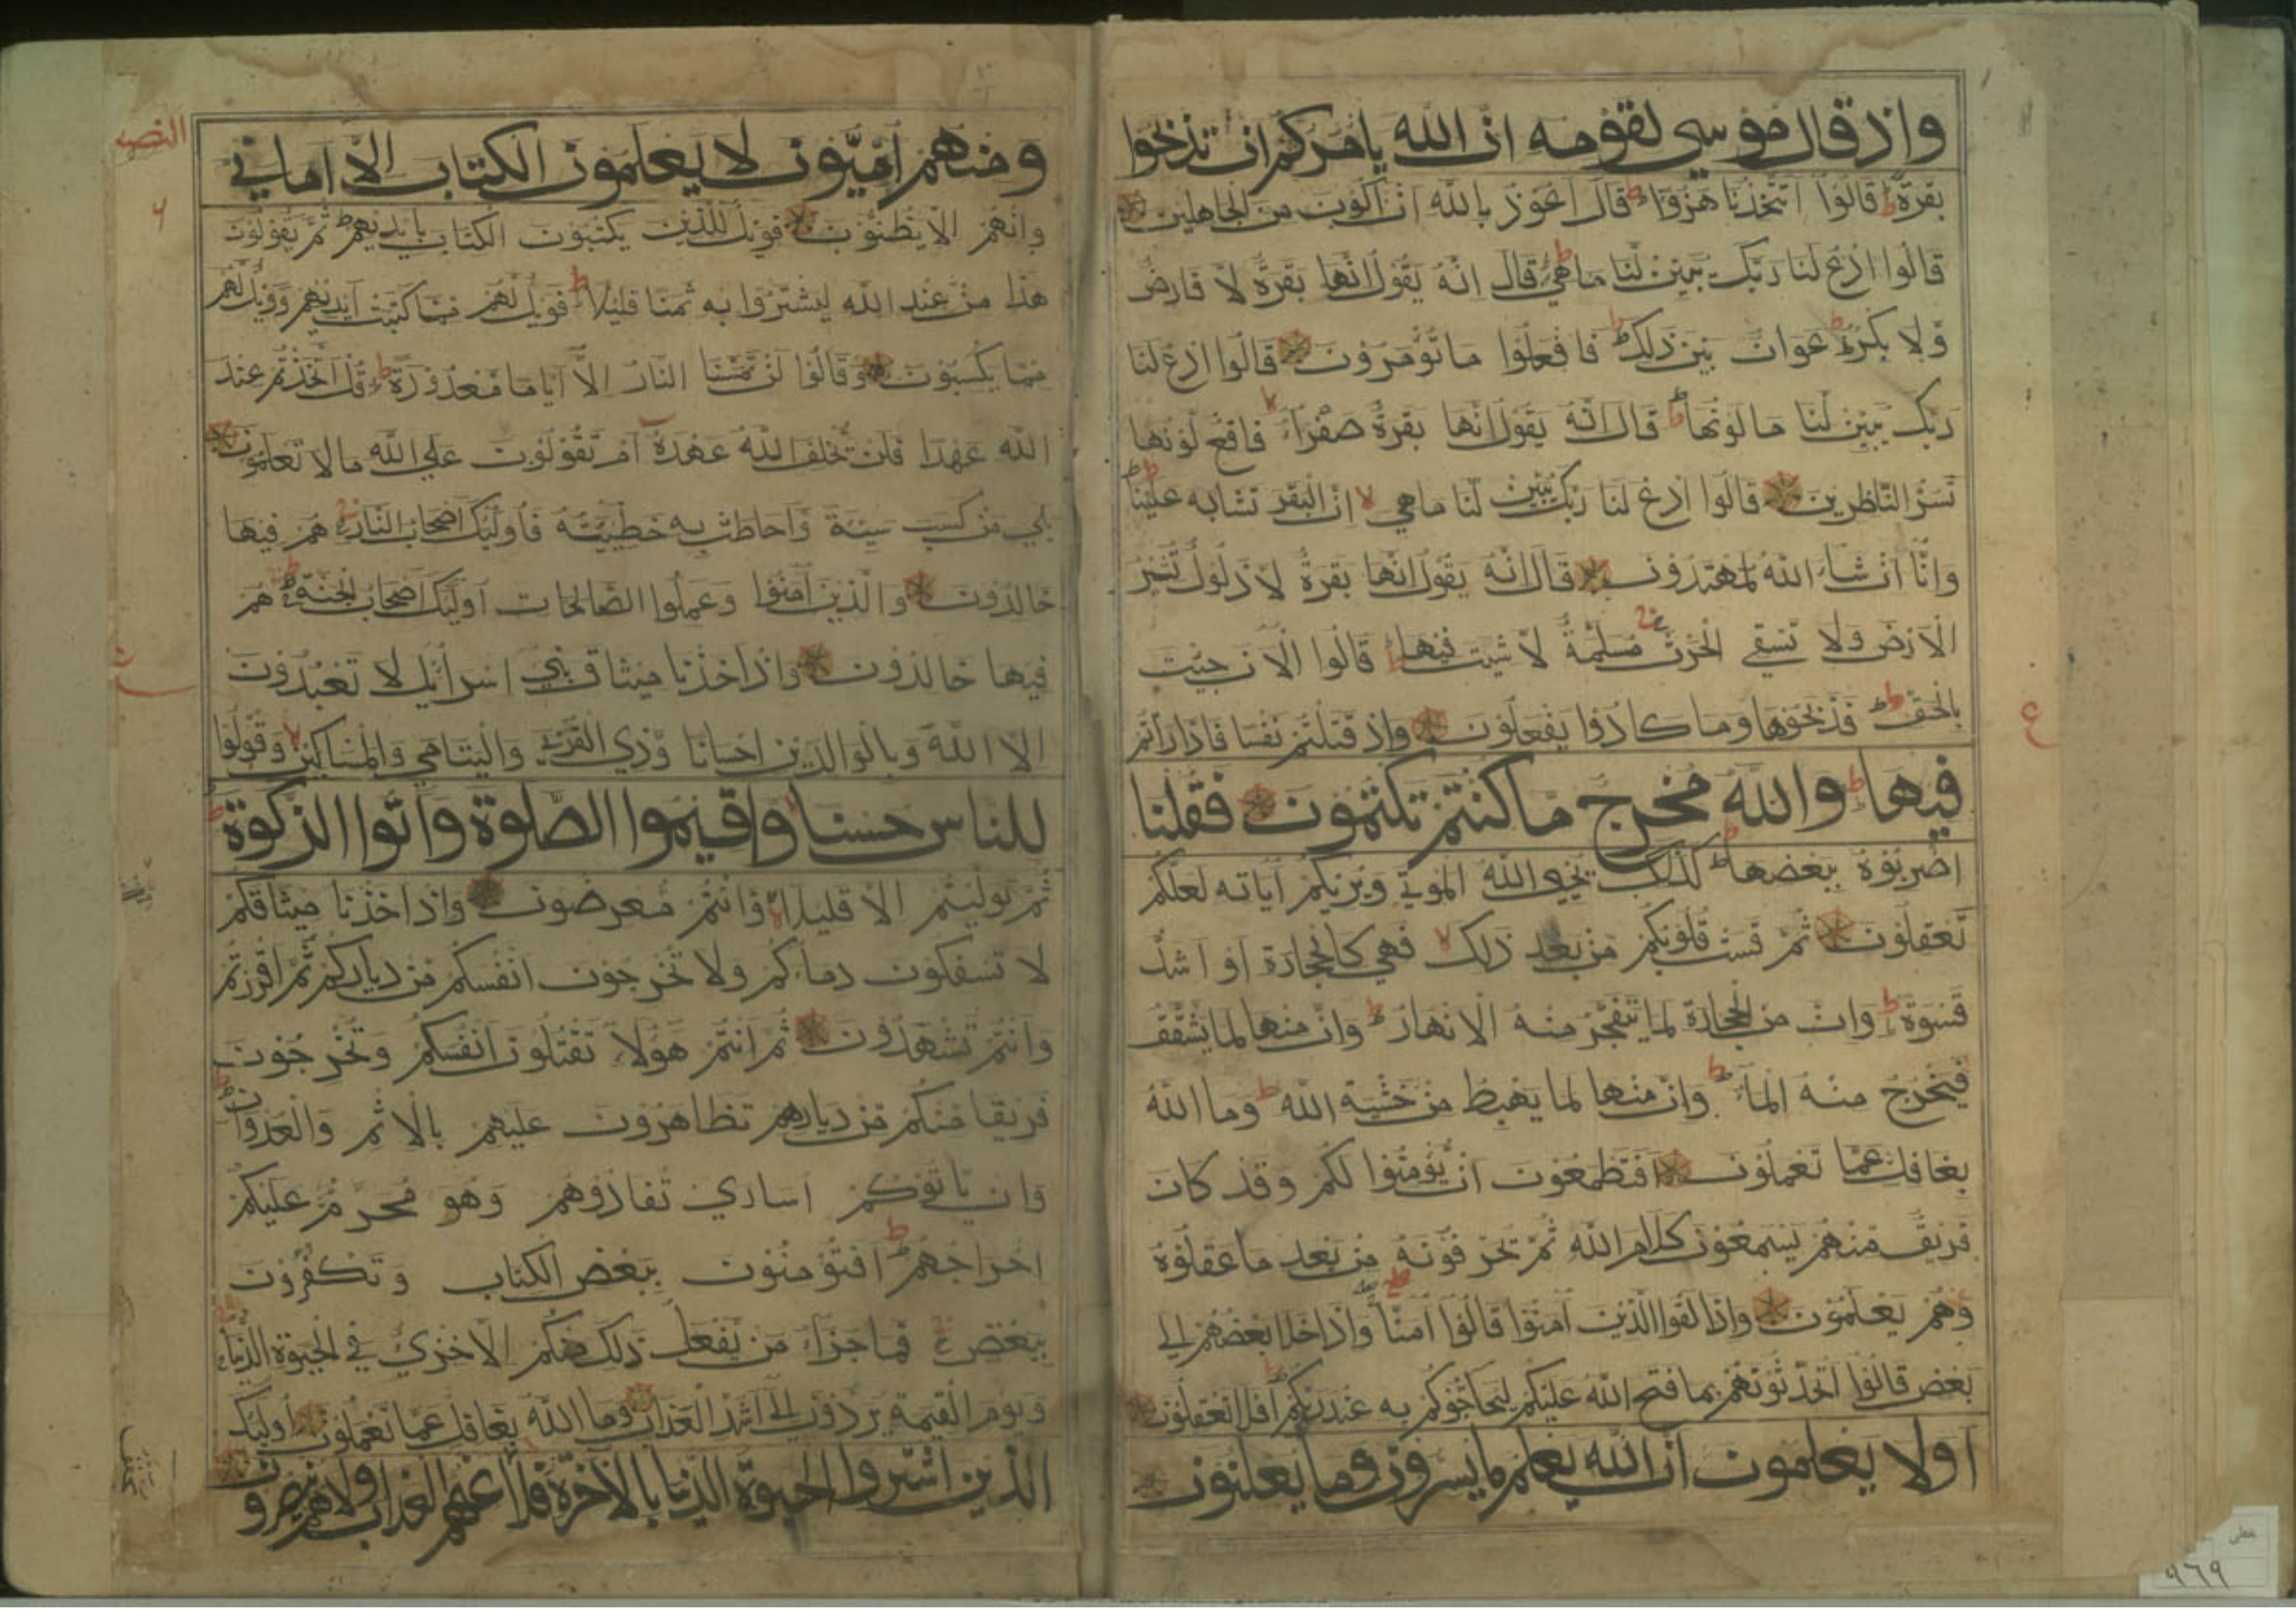 واذ قال موسى لقومه ان الله يامركم ان تذبحوا
بقرة ط قالوا اتتخذنا هزوا ط قال اعوذ بالله ان اكون من الجاهلين
قالوا ادع لنا ربك يبين لنا ما هي ط قال انه يقول انها بقرة لا فارض
ولا بكر ط عوان بين ذلك ط فافعلوا ما تؤمرون قالوا ادع لنا
ربك يبين لنا ما لونها ط قال انه يقول انها بقرة صفراء لا فاقع لونها
تسر الناظرين قالوا ادع لنا ربك يبين لنا ما هي لا ان البقر تشابه علينا ط
وانا ان شاء الله لمهتدون قال انه يقول انها بقرة لا ذلول تثير
الارض ولا تسقي الحرث ج مسلمة لا شية فيها ط قالوا الان جئت
بالحق ط فذبحوها وما كادوا يفعلون واذ قتلتم نفسا فاداراتم
ع
فيها ط والله مخرج ما كنتم تكتمون فقلنا
اضربوه ببعضها ط كذلك يحيي الله الموتى ويريكم آياته لعلكم
تعقلون ثم قست قلوبكم من بعد ذلك لا فهي كالحجارة او اشد
قسوة ط وان من الحجارة لما يتفجر منه الانهار ط وان منها لما يشقق
فيخرج منه الماء ط وان منها لما يهبط من خشية الله ط وما الله
بغافل عما تعملون افتطمعون ان يؤمنوا لكم وقد كان
فريق منهم يسمعون كلام الله ثم يحرفونه من بعد ما عقلوه
وهم يعلمون واذا لقوا الذين آمنوا قالوا آمنا واذا خلا بعضهم الى
بعض قالوا اتحدثونهم بما فتح الله عليكم ليحاجوكم به عند ربكم ط افلا تعقلون
اولا يعلمون ان الله يعلم ما يسرون وما يعلنون
٩٦٩
النصف
ومنهم اميون لا يعلمون الكتاب الا اماني
وان هم الا يظنون فويل للذين يكتبون الكتاب بايديهم ثم يقولون
هذا من عند الله ليشتروا به ثمنا قليلا ط فويل لهم مما كتبت ايديهم وويل لهم
مما يكسبون وقالوا لن تمسنا النار الا اياما معدودة ط قل اتخذتم عند
الله عهدا فلن يخلف الله عهده ام تقولون على الله ما لا تعلمون
بلى من كسب سيئة واحاطت به خطيئته فاولئك اصحاب النار ج هم فيها
خالدون والذين آمنوا وعملوا الصالحات اولئك اصحاب الجنة ج هم
فيها خالدون واذ اخذنا ميثاق بني اسرائيل لا تعبدون
الا الله وبالوالدين احسانا وذي القربى واليتامى والمساكين وقولوا
للناس حسنا واقيموا الصلوة وآتوا الزكوة ط
ثم توليتم الا قليلا وانتم معرضون واذ اخذنا ميثاقكم
لا تسفكون دماءكم ولا تخرجون انفسكم من دياركم ثم اقررتم
وانتم تشهدون ثم انتم هؤلاء تقتلون انفسكم وتخرجون
فريقا منكم من ديارهم تظاهرون عليهم بالاثم والعدوان ط
وان ياتوكم اسارى تفادوهم وهو محرم عليكم
اخراجهم ط افتؤمنون ببعض الكتاب وتكفرون
ببعض ج فما جزاء من يفعل ذلك منكم الا خزي في الحيوة الدنيا ج
ويوم القيمة يردون الى اشد العذاب وما الله بغافل عما تعملون اولئك
الذين اشتروا الحيوة الدنيا بالآخرة فلا عنهم العذاب ولا هم ينصرون